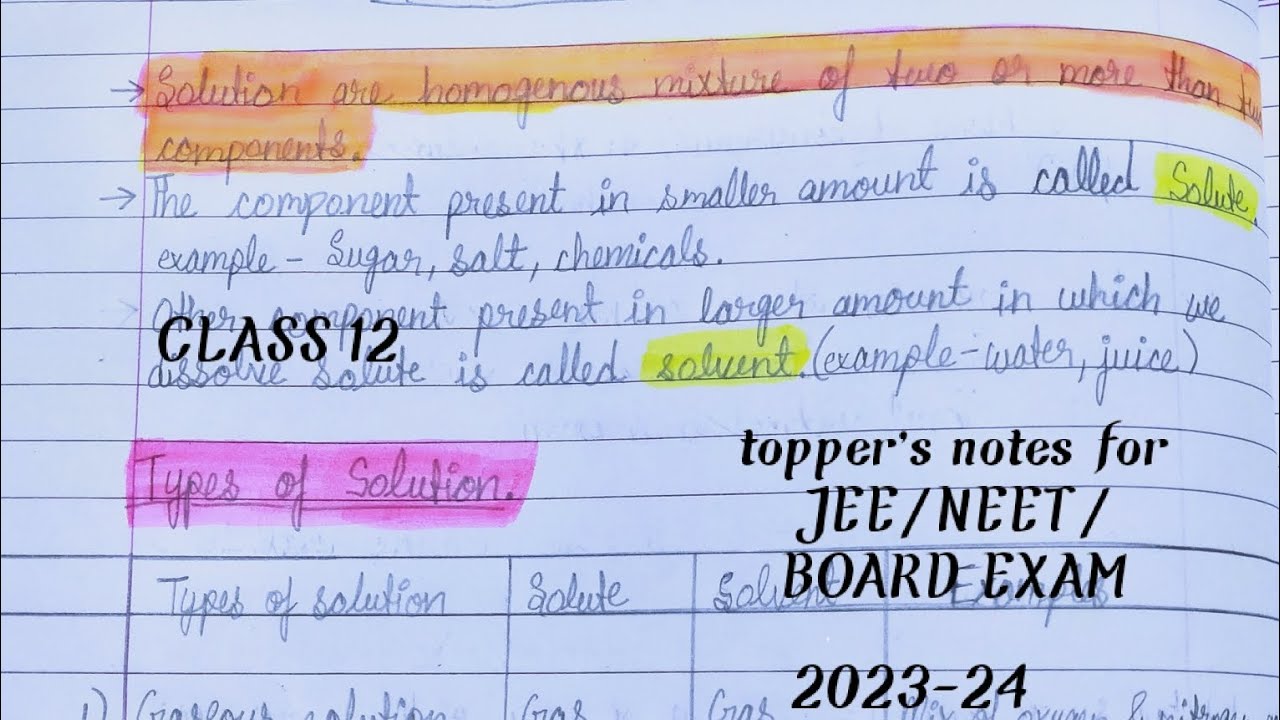 → Solution are homogenous mixture of two or more than
components.
→ The component present in smaller amount is called Solute.
example - Sugar, salt, chemicals.
→ Other component present in larger amount in which we
CLASS 12
dissolve solute is called solvent. (example - water, juice)
topper's notes for
Types of Solution.
JEE/NEET/
BOARD EXAM
Types of solution Solute Solvent Example
2023-24
1) Gaseous solution Gas Gas Mix of oxygen &